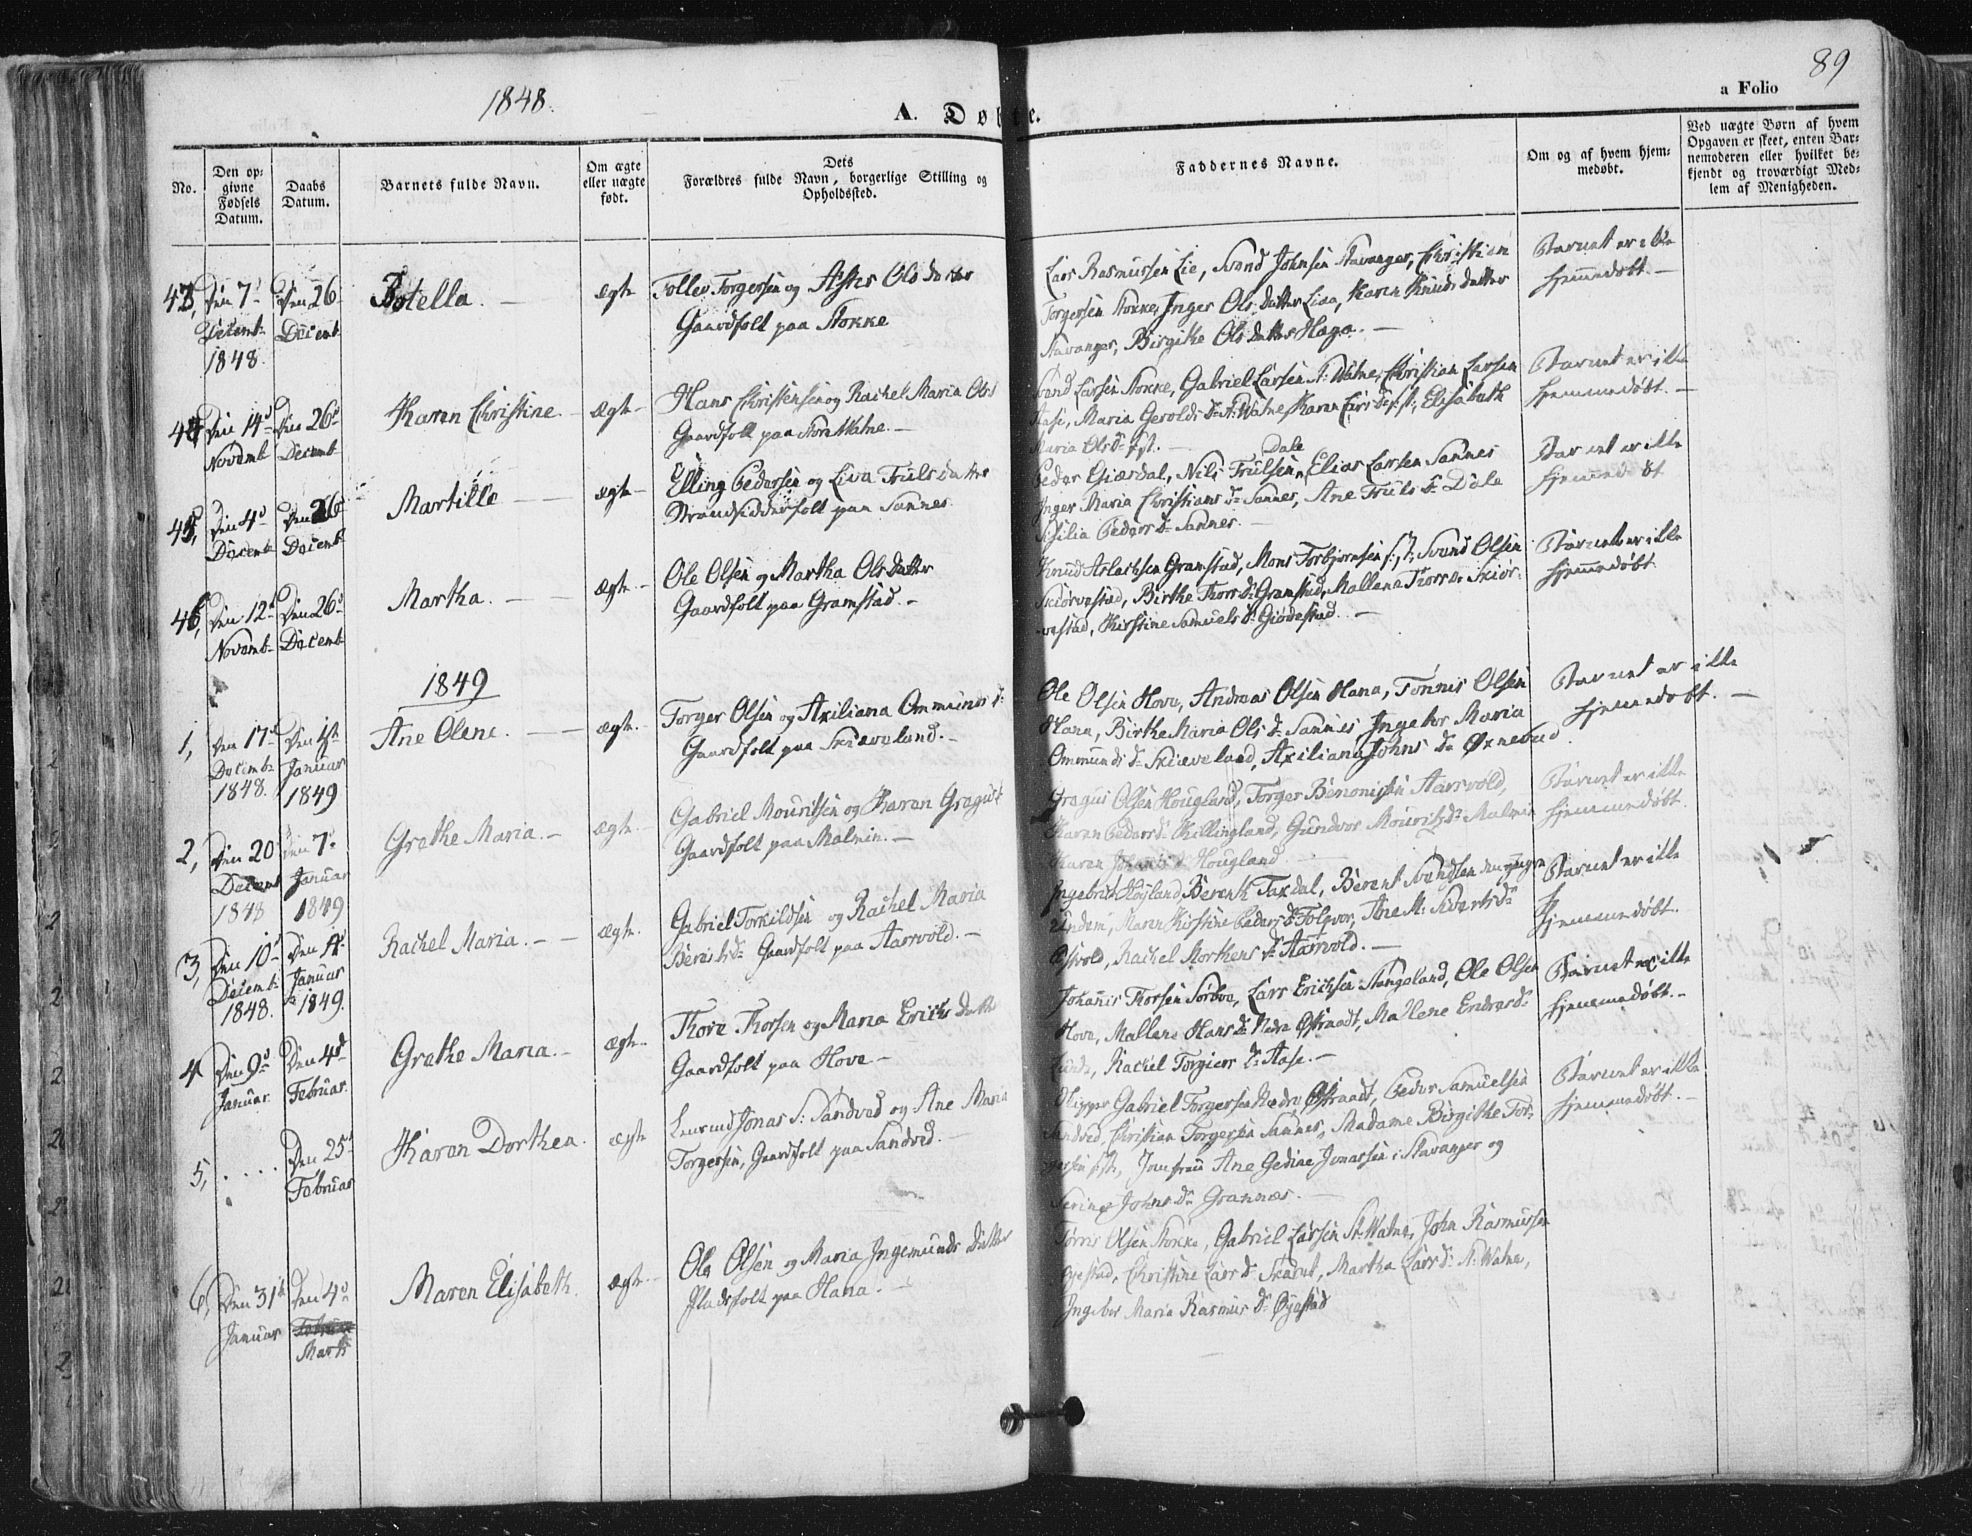 1848.
A. Døbte.
a Folio 89
No.
Den op-
givne
Fødsels
Datum.
Daabs
Datum.
Barnets fulde Navn.
Om ægte
eller uægte
født.
Dets
Forældres fulde Navn, borgerlige Stilling og
Opholdssted.
Faddernes Navne.
Om og af hvem hjem-
medøbt.
Ved uægte Børn af hvem
Opgaven er skeet, enten Bar-
nemoderen eller hvilket be-
kjendt og troværdigt Med-
lem af Menigheden.
43, Den 7de Decemb. 1848. Den 26 Decemb. Botella. — ægte
Tollev Torgersen og Astrs Olsdatter
Gaardfolk paa Stokke
Lars Rasmussen Lie, Svend Johnsen Stavanger, Christian
Torgersen Stokke, Inger Olsdatter Lura, Karen Knudsdatter
Stavanger, Birgithe Olsdatter Haga. —
Barnet er ikke
hjemmedøbt. —
44 Den 14d Novemb Den 26d Decemb Karen Christine. — ægte —
Hans Christensen og Rachel Maria Ols
Gaardfolk paa Store Watne. —
Svend Larsen Stokke, Gabriel Larsen St. Watne, Christian Larsen
Aase, Maria Gerolds d. St. Watne, Karen Lars d. st., Elisabeth
Maria Ols d. st. —
Barnet er ikke
hjemmedøbt. —
45, Den 4d Decemb Den 26 Decemb Martille — — ægte —
Elling Pedersen og Liva Trulsdatter
Strandsidderfolk paa Sannes.
Dale
Peder Giæsdal, Nils Trulsen, Elias Larsen Sannes
Inger Maria Christians d. Sannes, Ane Truls d. Dale
Peders d. Sannes. —
Barnet er ikke
hjemmedøbt
46, Den 12d Novemb Den 26d Decemb Martha. — — ægte. —
Ole Olsen og Martha Olsdatter
Gaardfolk paa Gramstad. —
Knud Aslacksen Gramstad, Mons Torbjørnsen st., Svend Olsen
Skiørvestad, Birthe Thors d. Gramstad, Mallena Thors d. Skiør-
vestad, Kirstine Samuels d. Giøvestad. —
Barnet er ikke
hjemmedøbt
1849
1, Den 17d Decemb 1848. Den 1ste Januar 1849 Ane Olene. — — ægte. —
Torger Olsen og Axiliana Ommunds d.
Gaardfolk paa Skiæveland. —
Ole Olsen Hove, Andreas Olsen Hana, Tønnis Olsen
Hana, Birthe Maria Ols d. Sannes, Ingebor Maria
Ommunds d. Skiæveland, Axiliana Johns d. Øxnebud.
Barnet er ikke
hjemmedøbt. —
2, Den 20 Decemb 1848 Den 7de Januar 1849 Grethe Maria. — ægte. —
Gabriel Mouritsen og Karen Gragus
Gaardfolk paa Malmin. —
Gragus Olsen Hougland, Torger Benonisen Aarrvold,
Karen Peders d. Killingland, Gundvor Mourits d. Malmin
Karen Hougland
Barnet er ikke
hjemmedøbt.
3, Den 10d Decemb 1848. Den Januar 1849. Rachel Maria. — — ægte.
Gabriel Torkildsen og Rachel Maria
Berents d. Gaardfolk paa Aarrvold. —
Ingebrit Høyland, Berent Taxdal, Berent Svendsen den yngre
Lindem, Maren Kirstine Peders d. Folqvor, Ane M. Siverts d.
Østvold, Rachel Morthens d. Aarrvold. —
Barnet er ikke
hjemmedøbt.
4 Den 9d Januar. Den 4d Februar. Grethe Maria. — ægte. —
Thore Thorsen og Maria Ericksdatter
Gaardfolk paa Hove —
Johannis Thorsen Sørboe, Lars Ericksen Stangeland, Ole Olsen
Hove, Mallene Hans d. Nedre Østraadt, Mallene Endres d.
Lunde, Rachel Torgiers d. Aase. —
Barnet er ikke
hjemmedøbt. —
5, .... Den 25de Februar Karen Dorthea. ægte
Jonas S. Sandved og Ane Maria
Torgersen, Gaardfolk paa Sandved. —
Skipper Gabriel Torgersen Nedre Østraadt, Peder Samuelsen
Sandved, Christian Torgersen Sannes, Madame Birgithe Tor-
gersen st., Jomfrue Ane Gedine Jonassen i Stavanger og
Serine Johns d. Grannæs. —
Barnet er ikke
hjemmedøbt. —
6, Den 31te Januar Den 4d Februar Marts Maren Elisabeth. ægte. —
Ole Olsen og Maria Ingemundsdatter
Pladsfolk paa Hana. —
Tørris Olsen Stokke, Gabriel Larsen St. Watne, John Rasmussen
Øyestad, Christine Lars d. Skaret, Martha Lars d. St. Watne,
Ingebor Maria Rasmus d. Øyestad